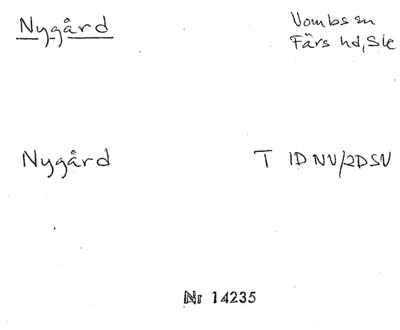 Nygård
Vombs sn
Färs hd, Sk
Nygård T 1D NV/2D SV
Nr 14235